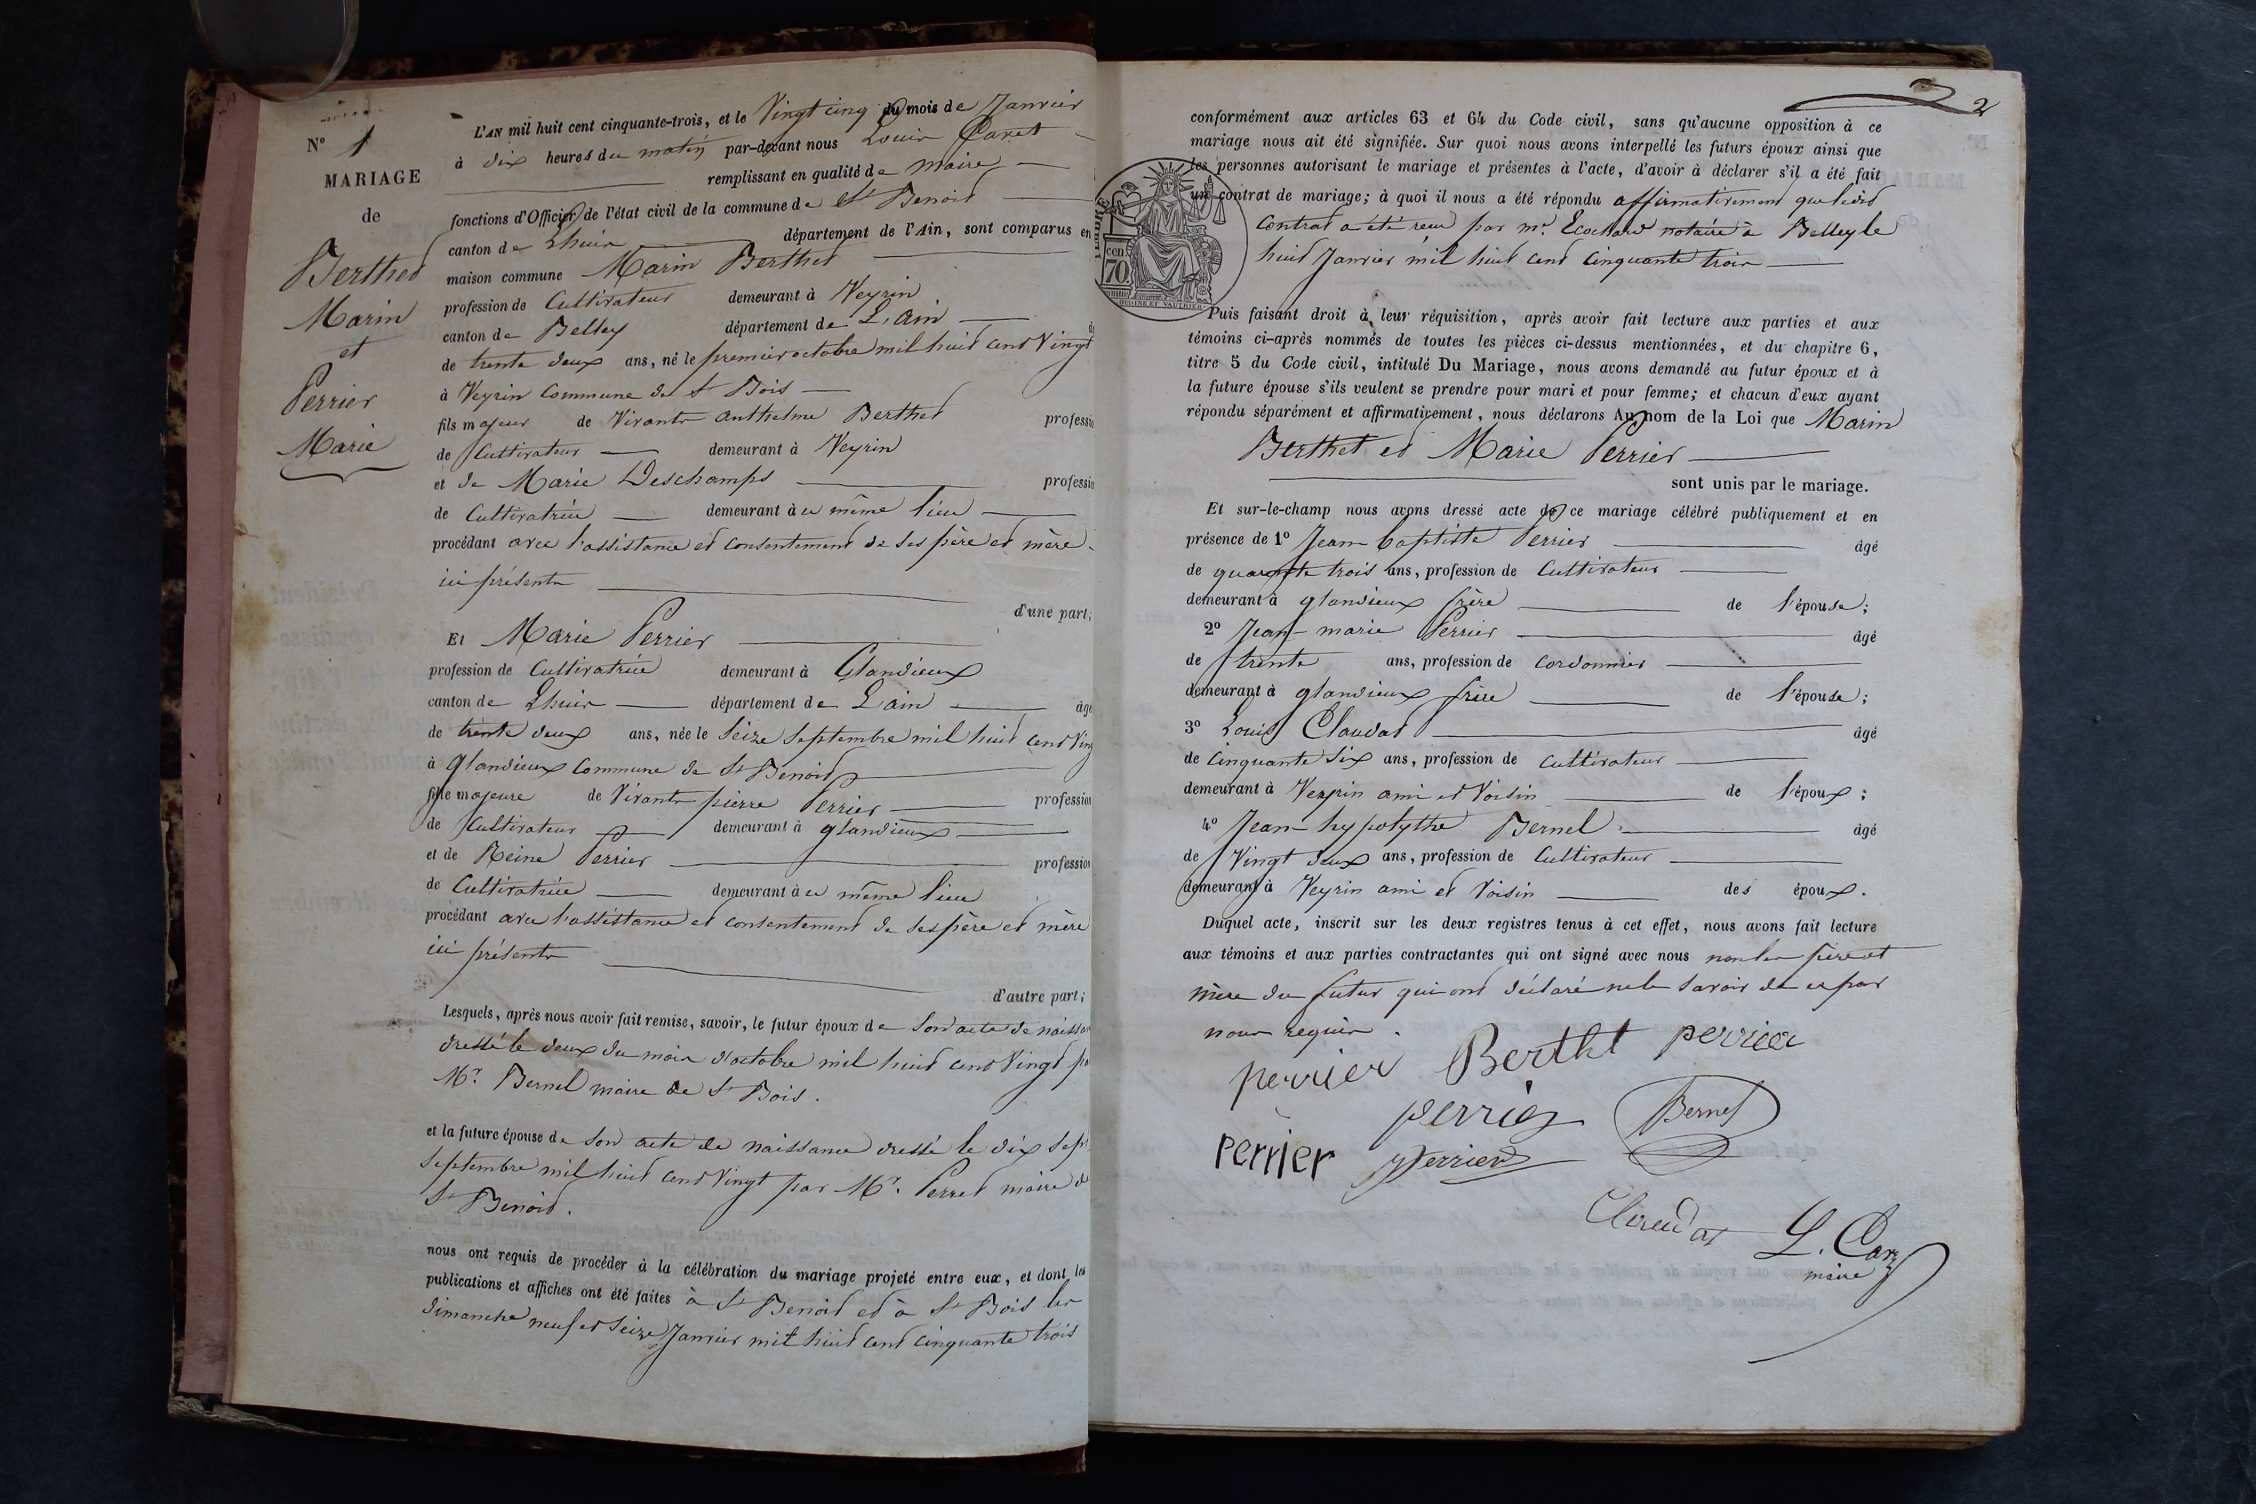 N° 1
MARIAGE
de
Berthet
Marin
et
Perrier
Marie
L'AN mil huit cent cinquante-trois, et le Vingt cinq du mois de Janvier
à dix heures du matin par-devant nous Louis
remplissant en qualité de maire
fonctions d'Officier de l'état civil de la commune de St Benoit
canton de Lhuis département de l'Ain, sont comparus en
maison commune Marin Berthet
profession de Cultivateur demeurant à Veyrin
canton de Belley département de L'ain
de trente deux ans, né le premier octobre mil huit cent Vingt
à Veyrin Commune de St Bois
fils majeur de Vivants anthelme Berthet professio
de Cultivateur demeurant à Veyrin
et de Marie Deschamps professio
de Cultivatrice demeurant à ce même lieu
procédant avec l'assistance et consentement de ses père et mère
ici présents
d'une part;
Et Marie Perrier
profession de Cultivatrice demeurant à Glandieux
canton de Lhuis département de L'ain âgé
de trente deux ans, née le Seize Septembre mil huit cent Ving
à Glandieux Commune de St Benoit
fille majeure de Vivants pierre Perrier profession
de Cultivateur demeurant à glandieux
et de Reine Perrier profession
de Cultivatrice demeurant à ce même lieu
procédant avec l'assistance et consentement de ses père et mère
ici présents
d'autre part;
Lesquels, après nous avoir fait remise, savoir, le futur époux de Son acte de naissan
dressé le deux du mois d'octobre mil huit cent Vingt pa
Mr. Bernel maire de St Bois.
et la future épouse de Son acte de naissance dressé le dix sept
Septembre mil huit cent Vingt par Mr. Perret maire de
St Benoit.
nous ont requis de procéder à la célébration du mariage projeté entre eux, et dont les
publications et affiches ont été faites à St Benoit et à St Bois les
dimanche neuf et Seize Janvier mil huit cent cinquante trois
2
conformément aux articles 63 et 64 du Code civil, sans qu'aucune opposition à ce
mariage nous ait été signifiée. Sur quoi nous avons interpellé les futurs époux ainsi que
les personnes autorisant le mariage et présentes à l'acte, d'avoir à déclarer s'il a été fait
un contrat de mariage; à quoi il nous a été répondu affirmativement que ledit
TIMBRE
cen
70
Contrat a été reçu par mr. Ecochard notaire à Belley le
huit Janvier mil huit cent cinquante trois
Puis faisant droit à leur réquisition, après avoir fait lecture aux parties et aux
témoins ci-après nommés de toutes les pièces ci-dessus mentionnées, et du chapitre 6,
titre 5 du Code civil, intitulé Du Mariage, nous avons demandé au futur époux et à
la future épouse s'ils veulent se prendre pour mari et pour femme; et chacun d'eux ayant
répondu séparément et affirmativement, nous déclarons Au nom de la Loi que Marin
Berthet et Marie Perrier
sont unis par le mariage.
Et sur-le-champ nous avons dressé acte de ce mariage célébré publiquement et en
présence de 1° Jean baptiste Perrier âgé
de quarante trois ans, profession de Cultivateur
demeurant à glandieux frère de l'épouse;
2° Jean-marie Perrier âgé
de trente ans, profession de cordonnier
demeurant à glandieux frère de l'épouse;
3° Louis Claudat âgé
de Cinquante Six ans, profession de cultivateur
demeurant à Veyrin ami et Voisin de l'époux;
4° Jean-hypolythe Bernel âgé
de Vingt deux ans, profession de Cultivateur
demeurant à Veyrin ami et Voisin des époux.
Duquel acte, inscrit sur les deux registres tenus à cet effet, nous avons fait lecture
aux témoins et aux parties contractantes qui ont signé avec nous non les père et
mère du futur qui ont déclaré ne le Savoir de ce par
nous requis.
perrier Berthet perrier
perrier Bernel
Perrier perrier
Claudat L.
maire